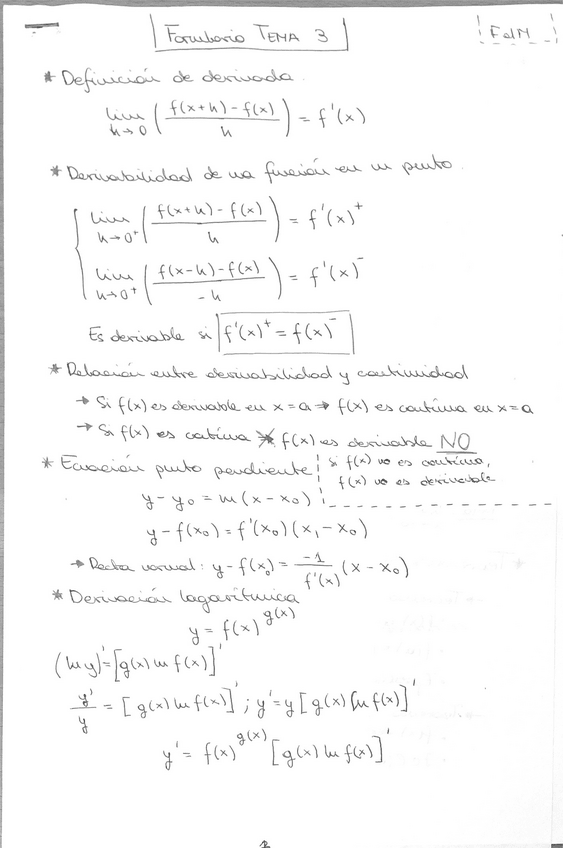 Formulario TEMA 3
FdIM
* Definición de derivada.
lim h→0 ( (f(x+h) - f(x)) / h ) = f'(x)
* Derivabilidad de una función en un punto.
lim h→0⁺ ( (f(x+h) - f(x)) / h ) = f'(x)⁺
lim h→0⁺ ( (f(x-h) - f(x)) / -h ) = f'(x)⁻
Es derivable si f'(x)⁺ = f(x)⁻
* Relación entre derivabilidad y continuidad
→ Si f(x) es derivable en x=a ⇒ f(x) es continua en x=a
→ Si f(x) es continua ⇏ f(x) es derivable NO
si f(x) no es continua,
f(x) no es derivable
* Ecuación punto pendiente
y - y₀ = m (x - x₀)
y - f(x₀) = f'(x₀) (x₁ - x₀)
→ Recta normal: y - f(x₀) = -1 / f'(x) (x - x₀)
* Derivación logarítmica
y = f(x)^g(x)
(ln y)' = [g(x) ln f(x)]'
y'/y = [g(x) ln f(x)]' ; y' = y [g(x) ln f(x)]'
y' = f(x)^g(x) [g(x) ln f(x)]'